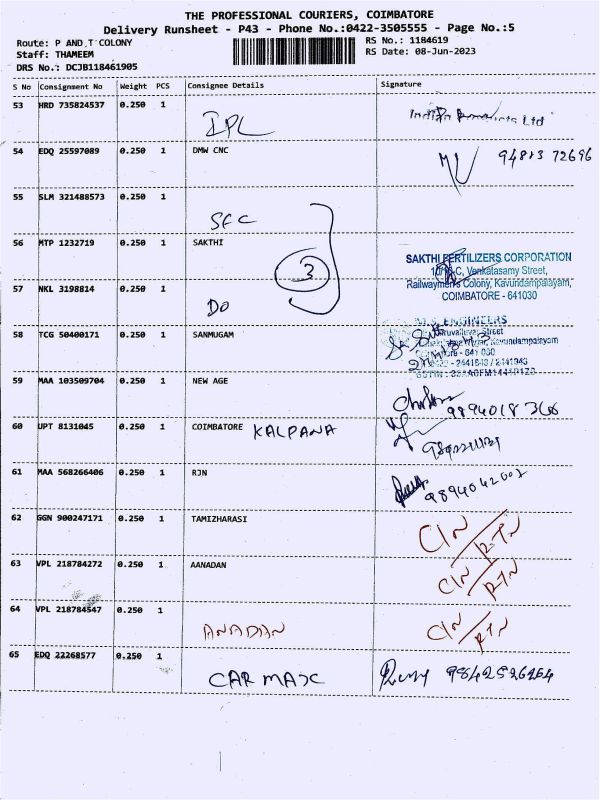 THE PROFESSIONAL COURIERS, COIMBATORE
Delivery Runsheet - P43 - Phone No.:0422-3505555 - Page No.:5
Route: P AND T COLONY RS No.: 1184619
Staff: THAMEEM RS Date: 08-Jun-2023
DRS No.: DCJB118461905
S No Consignment No Weight PCS Consignee Details Signature
53 HRD 735824537 0.250 1
IPL Ltd
54 EDQ 25597089 0.250 1 DMW CNC 94813 72696
55 SLM 321488573 0.250 1
SFC
56 MTP 1232719 0.250 1 SAKTHI
SAKTHI FERTILIZERS CORPORATION
Venkatasamy Street,
3
57 NKL 3198814 0.250 1 Railwaymen's Colony, Kavundampalayam,
COIMBATORE - 641030
DO
ENGINEERS
58 TCG 50400171 0.250 1 SANMUGAM Street
Kavundampalayam
59 MAA 103509704 0.250 1 NEW AGE
9894018 366
60 UPT 8131045 0.250 1 COIMBATORE KALPANA
61 MAA 568266406 0.250 1 RJN
9894042002
62 GGN 900247171 0.250 1 TAMIZHARASI
CIN/RTN
63 VPL 218784272 0.250 1 AANADAN
CIN/RTN
64 VPL 218784547 0.250 1
ANADIAN CIN/RTN
65 EDQ 22268577 0.250 1
CAR MAX 9842526264